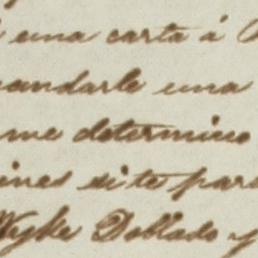 una carta á
mandarle una
me determino
ines si te par
Wyke Doblado y